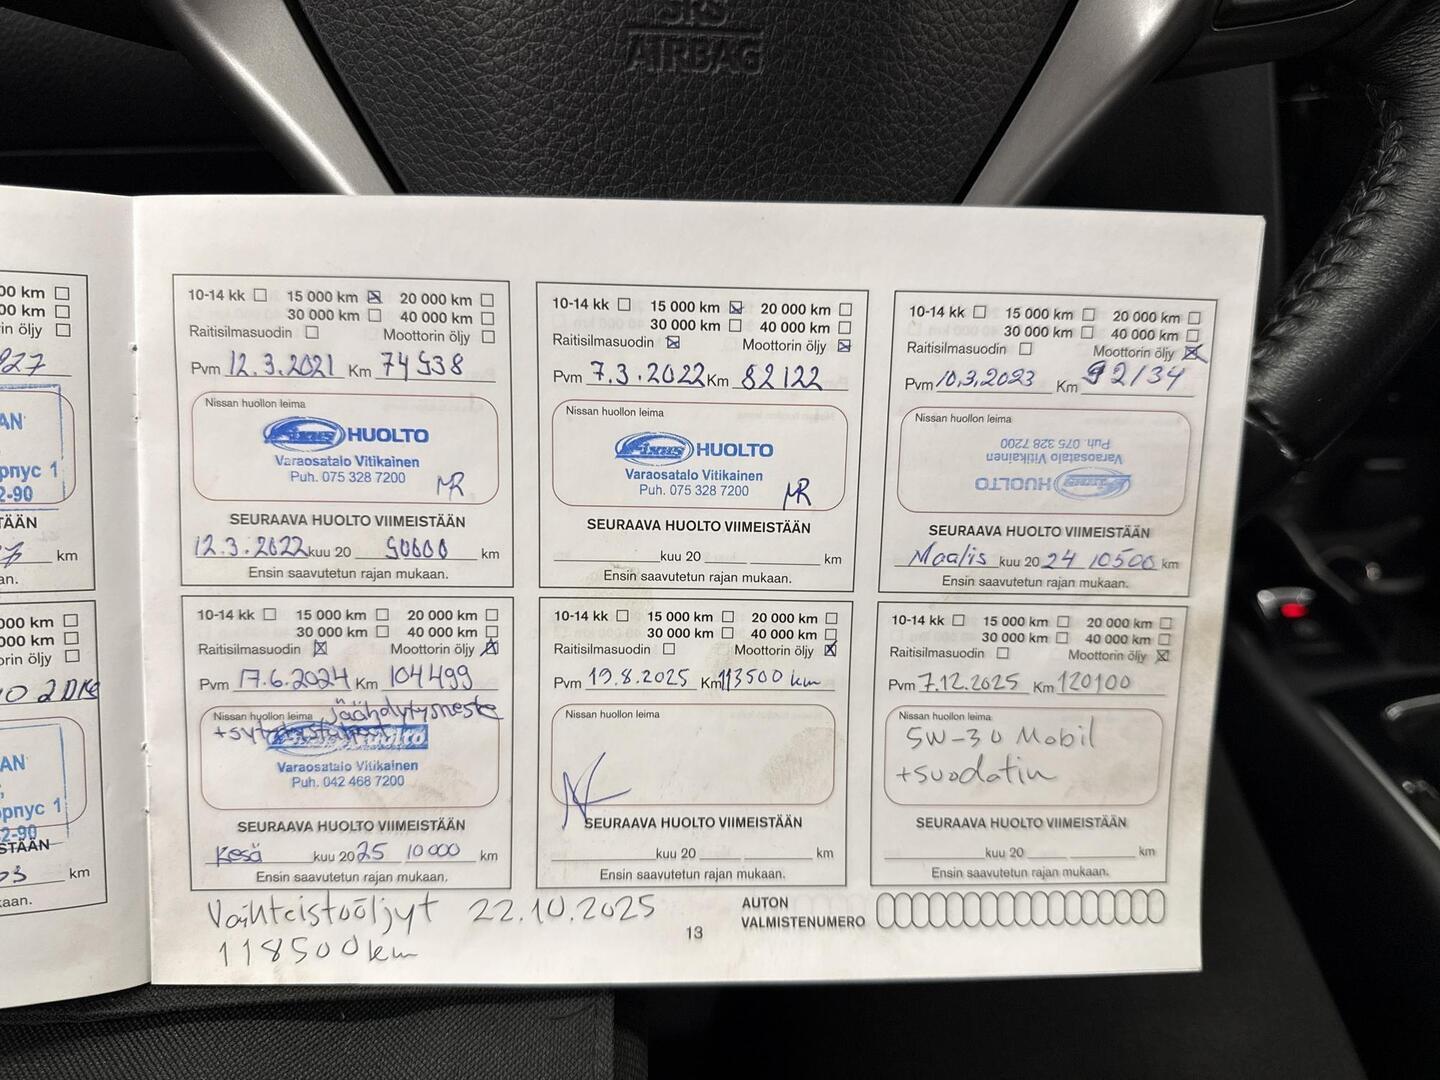 SRS
AIRBAG
00 km
00 km
rin öljy
927
AN
рпус 1
2-90
TÄÄN
km
an.
10-14 kk 15 000 km 20 000 km
30 000 km 40 000 km
Raitisilmasuodin Moottorin öljy
Pvm 12.3.2021 Km 74538
Nissan huollon leima
Fixus HUOLTO
Varaosatalo Vitikainen
Puh. 075 328 7200
MR
SEURAAVA HUOLTO VIIMEISTÄÄN
12.3.2022 kuu 20 90000 km
Ensin saavutetun rajan mukaan.
10-14 kk 15 000 km 20 000 km
30 000 km 40 000 km
Raitisilmasuodin Moottorin öljy
Pvm 7.3.2022 Km 82122
Nissan huollon leima
Fixus HUOLTO
Varaosatalo Vitikainen
Puh. 075 328 7200
MR
SEURAAVA HUOLTO VIIMEISTÄÄN
kuu 20 km
Ensin saavutetun rajan mukaan.
10-14 kk 15 000 km 20 000 km
30 000 km 40 000 km
Raitisilmasuodin Moottorin öljy
Pvm 10.3.2023 Km 92134
Nissan huollon leima
Fixus HUOLTO
Varaosatalo Vitikainen
Puh 075 328 7200
SEURAAVA HUOLTO VIIMEISTÄÄN
Maalis kuu 20 24 10500 km
Ensin saavutetun rajan mukaan.
00 km
000 km
000 km
orin öljy
AN
орпус 1
2-90
STÄÄN
03 km
kaan.
10-14 kk 15 000 km 20 000 km
30 000 km 40 000 km
Raitisilmasuodin Moottorin öljy
Pvm 17.6.2024 Km 104499
Nissan huollon leima jäähdytysneste
Huolto
Varaosatalo Vitikainen
Puh. 042 468 7200
SEURAAVA HUOLTO VIIMEISTÄÄN
Kesä kuu 20 25 10000 km
Ensin saavutetun rajan mukaan.
10-14 kk 15 000 km 20 000 km
30 000 km 40 000 km
Raitisilmasuodin Moottorin öljy
Pvm 19.8.2025 Km 113500 km
Nissan huollon leima
SEURAAVA HUOLTO VIIMEISTÄÄN
kuu 20 km
Ensin saavutetun rajan mukaan.
10-14 kk 15 000 km 20 000 km
30 000 km 40 000 km
Raitisilmasuodin Moottorin öljy
Pvm 7.12.2025 Km 120100
Nissan huollon leima
5W-30 Mobil
+suodatin
SEURAAVA HUOLTO VIIMEISTÄÄN
kuu 20 km
Ensin saavutetun rajan mukaan.
Vaihteistoöljyt 22.10.2025
118500km
AUTON
VALMISTENUMERO
13